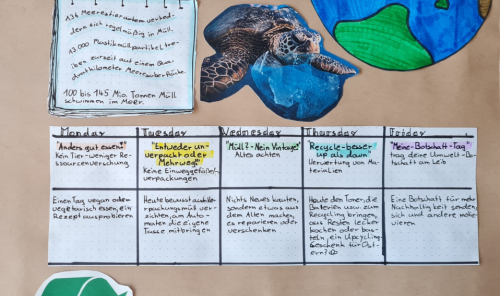 136 Meerestierarten verhed-
dern sich regelmäßig in Müll.
13.000 Plastikmüllpartikel trei-
ben zurzeit auf einem Qua-
dratkilometer Meeresoberfläche.
100 bis 145 Mio. Tonnen Müll
schwimmen im Meer.
Monday Tuesday Wednesday Thursday Friday
"Anders gut essen!"
Kein Tier-weniger Re-
ssourcenverschung
"Entweder un-
verpackt oder
Mehrweg"
Keine Einweggefäße/-
verpackungen
"Müll?-Nein Vintage"
Altes achten
"Recycle-besser
up als down"
Verwertung von Ma-
terialien
"Meine-Botschaft-Tag"
trag deine Umwelt-Bo-
tschaft am Leib
Einen Tag vegan oder
vegetarisch essen, ein
Rezept ausprobieren
Heute bewusst auf Ve-
rpackungsmüll ver-
zichten, am Auto-
maten die eigene
Tasse mitbringen
Nichts Neues kaufen,
sondern etwas aus
dem Alten machen,
es reparieren oder
verschenken
Heute den Toner, die
Batterien usw. zum
Recycling bringen,
aus Resten lecker
kochen oder bas-
teln, ein Upcycling-
Geschenk für Ost-
ern?
Eine Botschaft für mehr
Nachhaltigkeit senden,
sich und andere moti-
vieren